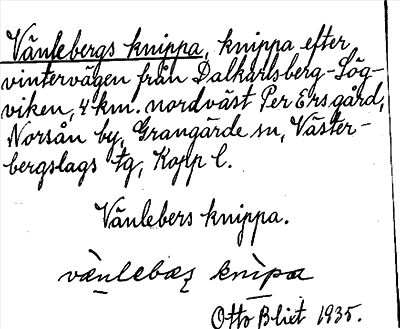 Vänlebergs knippa, knippa efter
vintervägen från Dalkarlsberg-Sög-
viken, 4 km. nordväst Per Ersgård,
Norsån by, Grangärde sn, Väster-
bergslags tg, Kopp l.
Vänlebers knippa.
Otto Bliet 1935.